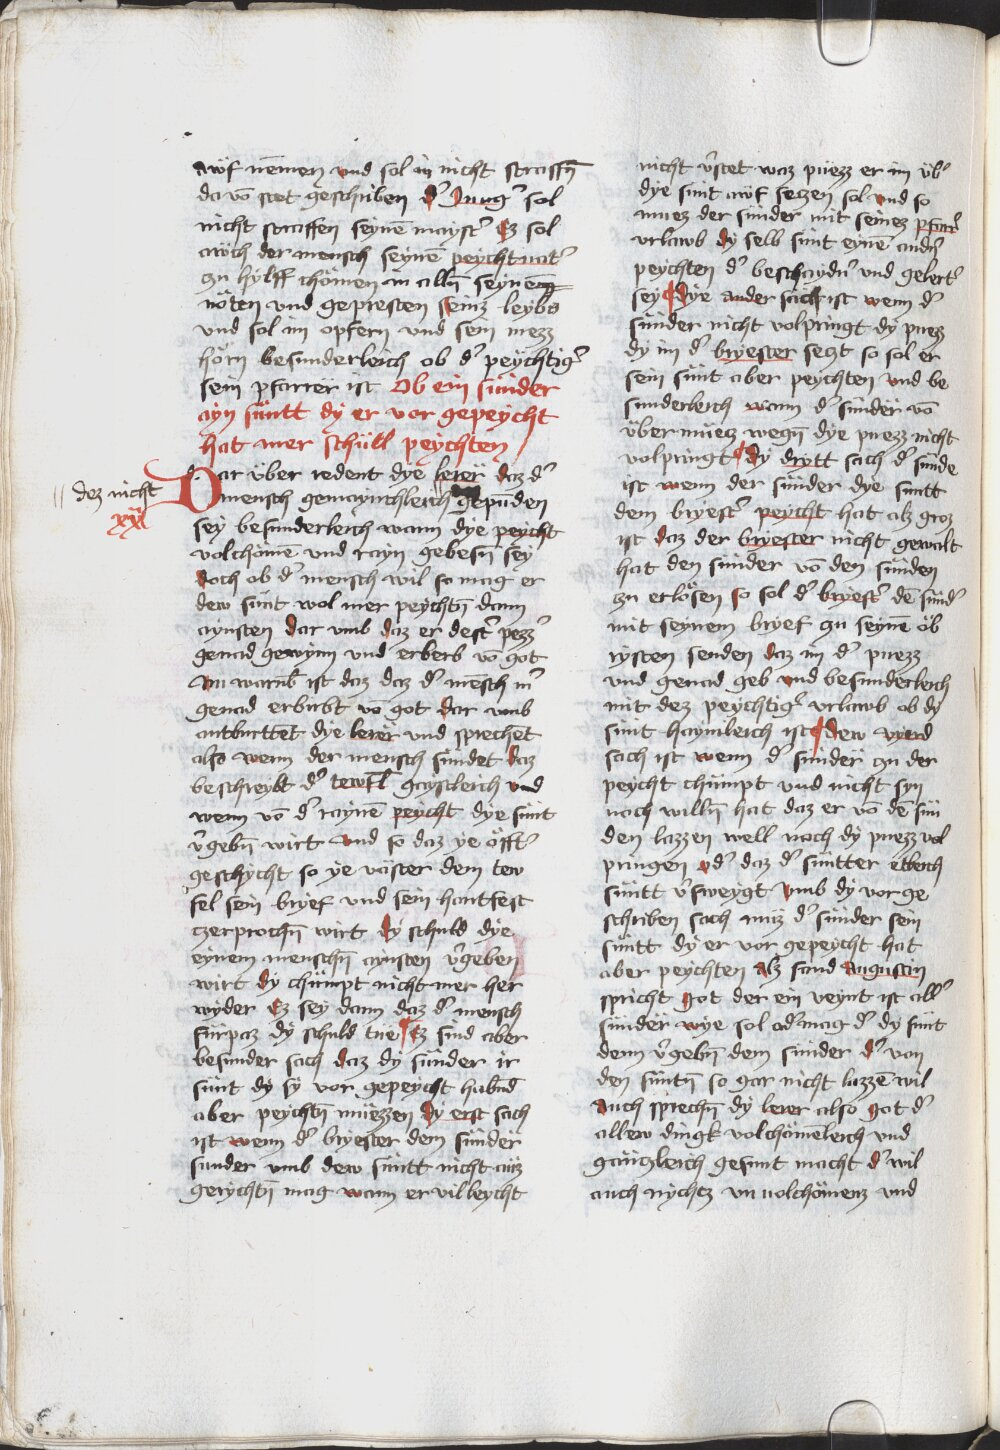 awf nemen vnd sol in nicht straffn̄
da vō stet geschriben d' Jung' sol
nicht straffen seynē mayst' Ez sol
auch der mensch seynē peychtuat'
zu hylff chömen in alln̄ seynen
nöten vnd gepresten seinz leybs
vnd sol im opfern vnd sein mezz
hörn besunderleich ob d' peychtig'
sein pfarrer ist Ob ein sünder
ayn süntt dy er vor gepeycht
hat mer schüll peychten
Dar über redent dye lerer daz d'
mensch gemaynchleich gepunden
dez nicht
xxi
sey besunderleich wann dye peycht
volchömē vnd rayn gebesn̄ sey
doch ob d' mensch wil so mag er
dew sünt wol mer peychtn̄ dann
aynsten dar vmb daz er dest' pezz'
genad gewynn vnd erberb vō got
An warūb ist daz daz d' mēsch m'
genad erbirbt vō got dar vmb
antburttēt dye lerer vnd sprechēt
also wenn der mensch sündet daz
beschreybt d' tewfl gaystleich vnd
wenn vō d' raynē peycht dye sünt
v'gebn̄ wirt vnd so daz ye öfft'
geschycht so ye vaster dem tew
fel sein bryef vnd sein hantfest
czerprochn̄ wirt dy schuld dye
eynem menschn̄ aynsten v'geben
wirt dy chümpt nicht mer her
wyder Ez sey dann daz d' mensch
fürpaz dy schuld tue Ez sind aber
besunder sach daz dy sünder ir
sünt dy sy vor gepeycht habnd
aber peychtn̄ müezzen dy erst sach
ist wenn d' bryester dem sünder
sunder vmb dew süntt nicht auz
gerychtn̄ mag wann er villeycht
nicht v'stet waz puezz er im üb'
dye sünt awf seczen sol vnd so
muez der sünder mit seinez pfar'
vrlawb dy selb sünt eynē and'n
peychten d' beschaydn' vnd gelert'
sey dye ander sach ist wenn d'
sünder nicht volpringt dy puezz
dy im d' bryester seczt so sol er
sein sünt aber peychten vnd be
sunderleich wann d' sünder vō
übermuecz wegn̄ dye puezz nicht
volpringt dy drytt sach d' sünde
ist wenn der sünder dye süntt
dem bryest' peycht hat alz groz
ist daz der bryester nicht gewalt
hat den sünder vō den sünden
zu erlösen so sol d' bryest' dē sünd'
mit seynem bryef zu seynē öb
rysten senden daz im d' puezz
vnd genad geb vnd besunderleich
mit dez peychtig' vrlawb ob dy
sünt haymleich ist dew vyerd
sach ist wenn d' sünder zu der
peycht chümpt vnd nicht syn
noch willn̄ hat daz er vō dē sün
den lazzen well noch dy puezz vol
pringen od' daz d' süntter etleich
süntt v'sweygt vmb dy vor ge
schriben sach muz d' sünder sein
süntt dy er vor gepeycht hat
aber peychten Alz sand Augustin
spricht got der ein veynt ist all'
sünder wye sol od' mag d' dy sünt
denn v'gebn̄ dem sünder d' von
den süntn̄ so gar nicht lazzē wil
Auch sprechn̄ dy lerer also got d'
allew dingk volchömēleich vnd
gänczleich gesunt macht d' wil
auch nychtz vn uolchömenz vnd